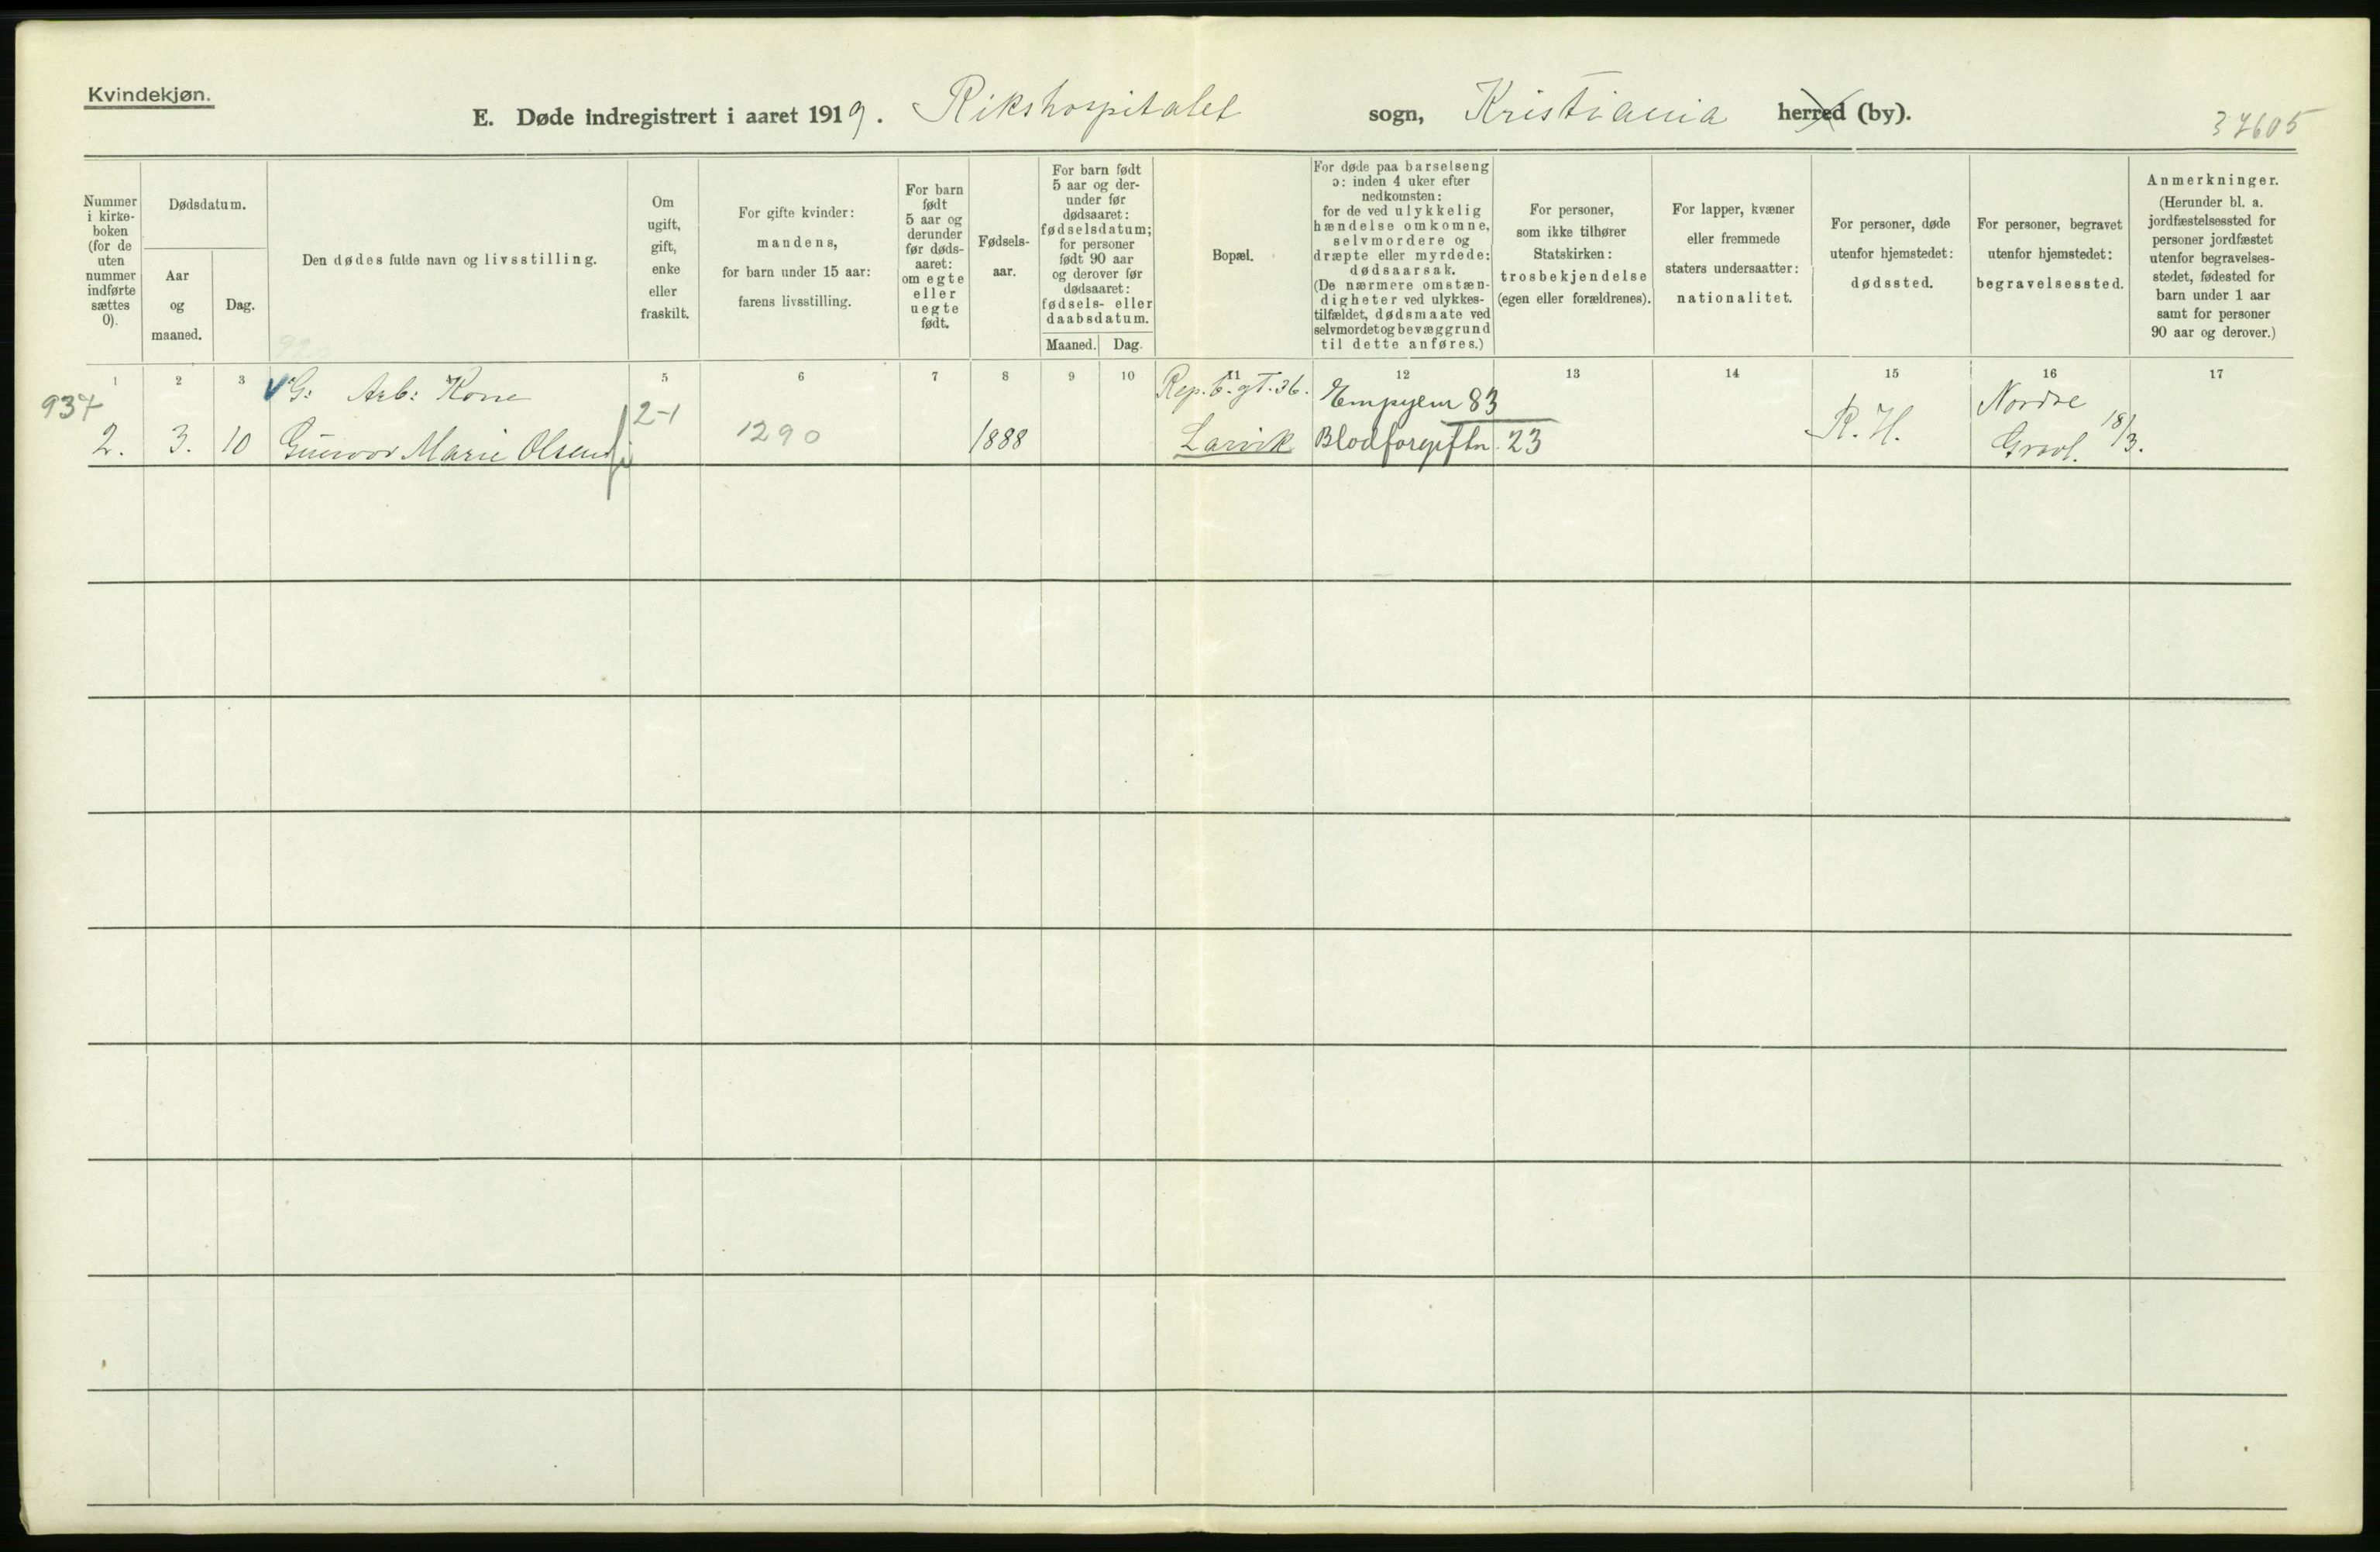 Kvindekjøn.
E. Døde indregistrert i aaret 1919. Rikshospitalet sogn, Kristiania herred (by).
37605
Nummer
i kirke-
boken
(for de
uten
nummer
indførte
sættes
0).
Dødsdatum.
Aar
og
maaned.
Dag.
Den dødes fulde navn og livsstilling.
Om
ugift,
gift,
enke
eller
fraskilt.
For gifte kvinder:
mandens,
for barn under 15 aar:
farens livsstilling.
For barn
født
5 aar og
derunder
før døds-
aaret:
om egte
eller
uegte
født.
Fødsels-
aar.
For barn født
5 aar og der-
under før
dødsaaret:
fødselsdatum;
for personer
født 90 aar
og derover før
dødsaaret:
fødsels- eller
daabsdatum.
Maaned. Dag.
Bopæl.
For døde paa barselseng
ɔ: inden 4 uker efter
nedkomsten:
for de ved ulykkelig
hændelse omkomne,
selvmordere og
dræpte eller myrdede:
dødsaarsak.
(De nærmere omstæn-
digheter ved ulykkes-
tilfældet, dødsmaate ved
selvmordet og bevæggrund
til dette anføres.)
For personer,
som ikke tilhører
Statskirken:
trosbekjendelse
(egen eller forældrenes).
For lapper, kvæner
eller fremmede
staters undersaatter:
nationalitet.
For personer, døde
utenfor hjemstedet:
dødssted.
For personer, begravet
utenfor hjemstedet:
begravelsessted.
Anmerkninger.
(Herunder bl. a.
jordfæstelsessted for
personer jordfæstet
utenfor begravelses-
stedet, fødested for
barn under 1 aar
samt for personer
90 aar og derover.)
1 2 3 4 5 6 7 8 9 10 11 12 13 14 15 16 17
937 G: Arb: Kone 2-1 Rep. b. gt. 36. Empyem 83 Nordre
2. 3. 10 Gunvor Marie Olsen 1290 1888 Larvik Blodforgiftn. 23 R. H. Gravl. 18/3.